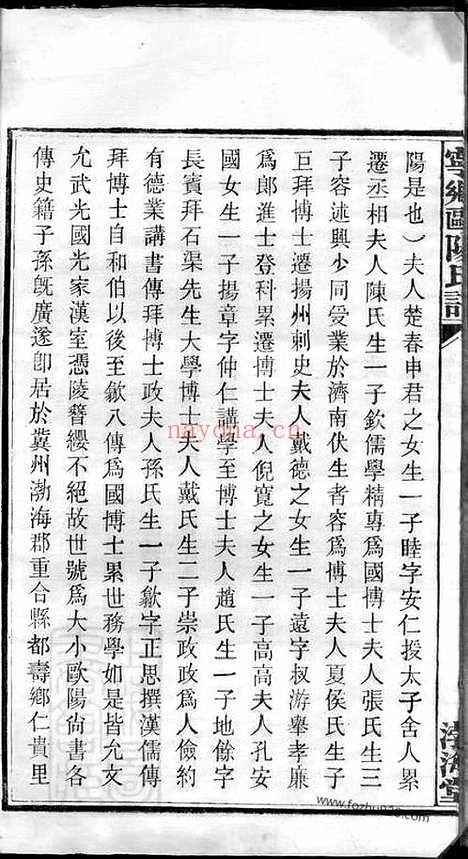 寧鄉歐陽氏譜
渤海堂
陽是也）夫人楚春申君之女生一子睦字安仁授太子舍人累
遷丞相夫人陳氏生一子欽儒學精專爲國博士夫人張氏生三
子容述興少同受業於濟南伏生者容爲博士夫人夏侯氏生子
巨拜博士遷揚州刺史夫人戴德之女生一子遠字叔游舉孝廉
爲郎進士登科累遷博士夫人倪寬之女生一子高高夫人孔安
國女生一子揚章字仲仁講學至博士夫人趙氏生一子地餘字
長賓拜石渠先生大學博士夫人戴氏生二子崇政政爲人儉約
有德業講書傳拜博士政夫人孫氏生一子歙字正思撰漢儒傳
拜博士自和伯以後至歙八傳爲國博士累世務學如是皆允文
允武光國光家漢室憑陵簪纓不絕故世號爲大小歐陽尚書各
傳史籍子孫旣廣遂卽居於冀州渤海郡重合縣都壽鄉仁貴里
nayona.cn
www.fozhu920.com